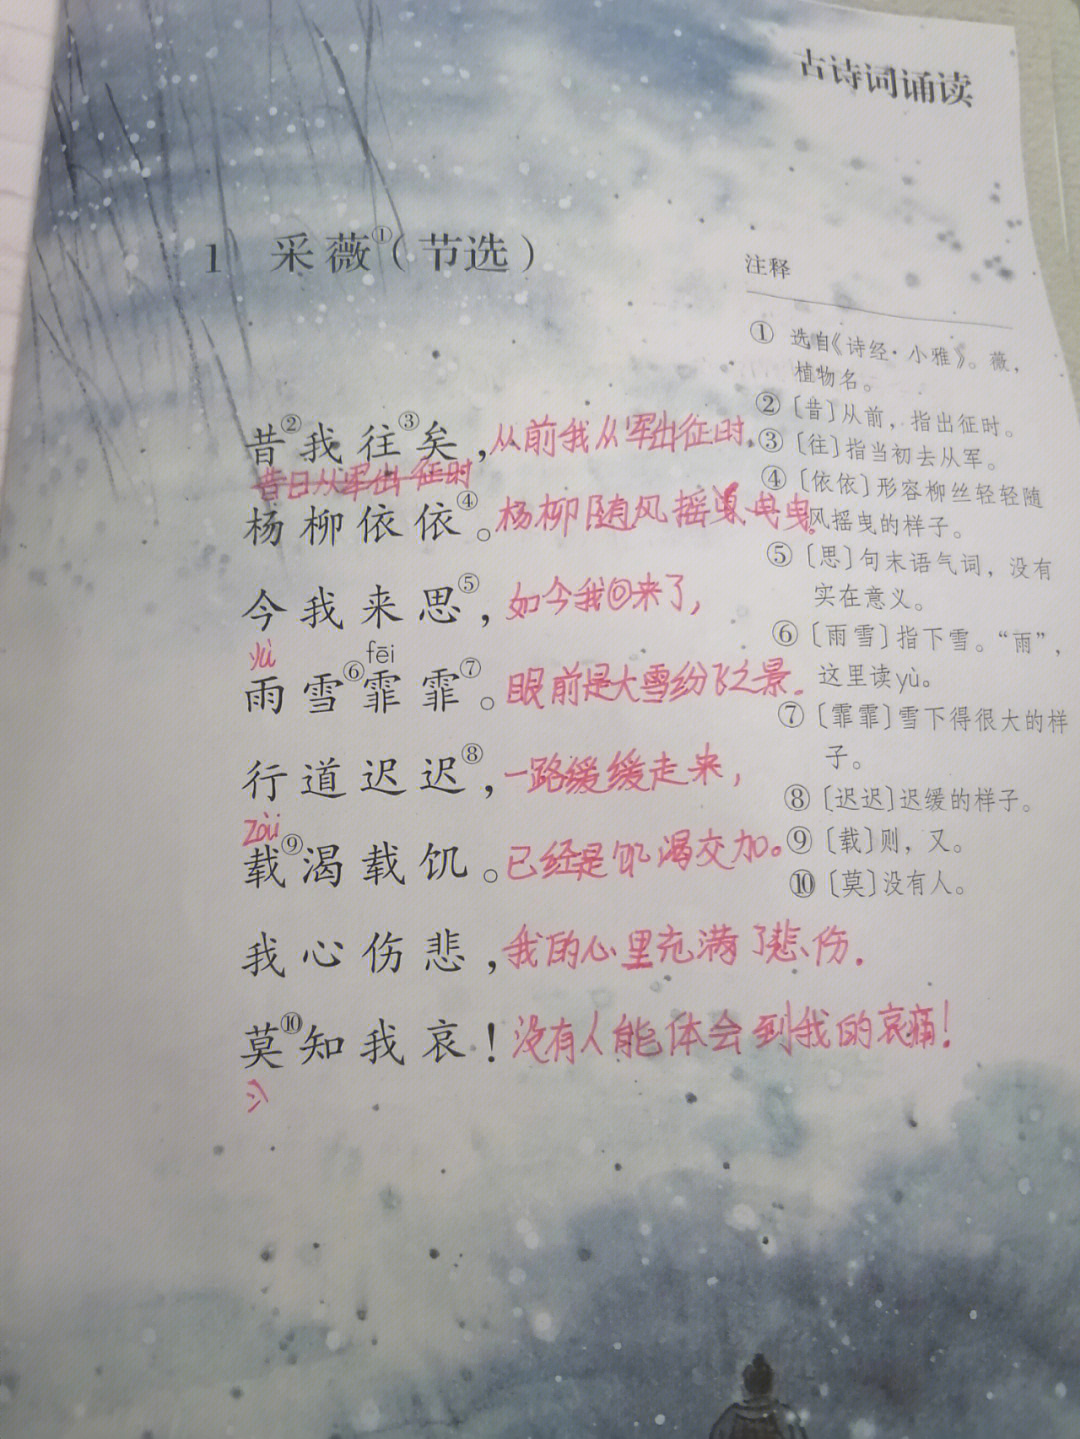 古诗词诵读
1 采薇①（节选）
昔②我往③矣，从前我从军出征时，
昔日从军出征时
杨柳依依④。杨柳随风摇曳。
今我来思⑤，如今我回来了，
yù fēi
雨雪⑥霏霏⑦。眼前是大雪纷飞之景.
行道迟迟⑧，一路缓缓走来，
zài
载⑨渴载饥。已经是饥渴交加。
我心伤悲，我的心里充满了悲伤.
莫⑩知我哀！没有人能体会到我的哀痛！
注释
① 选自《诗经·小雅》。薇，
植物名。
②〔昔〕从前，指出征时。
③〔往〕指当初去从军。
④〔依依〕形容柳丝轻轻随
风摇曳的样子。
⑤〔思〕句末语气词，没有
实在意义。
⑥〔雨雪〕指下雪。“雨”，
这里读yù。
⑦〔霏霏〕雪下得很大的样
子。
⑧〔迟迟〕迟缓的样子。
⑨〔载〕则，又。
⑩〔莫〕没有人。